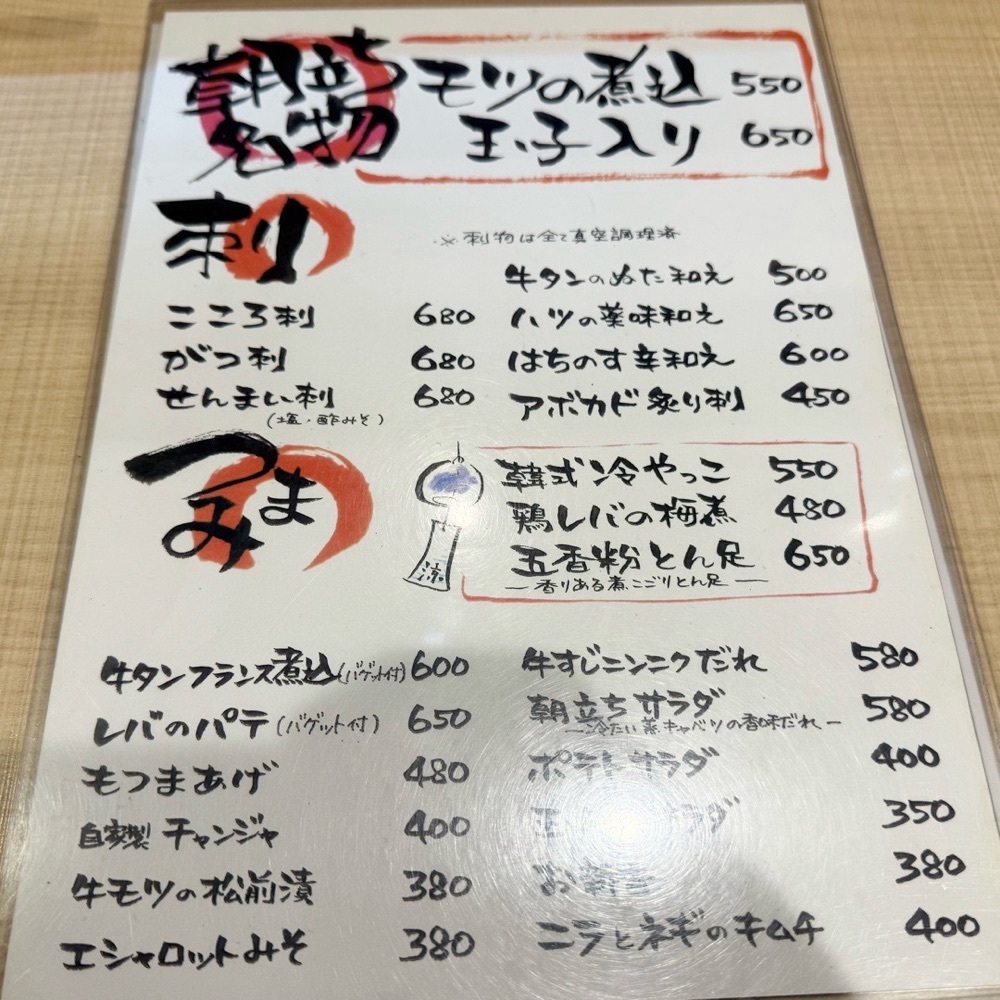 朝立ち名物
モツの煮込 550
玉子入り 650
刺り
※刺物は全て真空調理済
こころ刺 680
がつ刺 680
せんまい刺 680
(塩・酢みそ)
牛タンのぬた和え 500
ハツの薬味和え 650
はちのす辛和え 600
アボカド炙り刺 450
つまみ
涼
韓式冷やっこ 550
鶏レバの梅煮 480
五香粉とん足 650
―香りある煮こごりとん足―
牛タンフランス煮込(バゲット付) 600
レバのパテ(バゲット付) 650
もつまあげ 480
自家製チャンジャ 400
牛モツの松前漬 380
エシャロットみそ 380
牛すじニンニクだれ 580
朝立ちサラダ 580
―冷たい蒸キャベツの香味だれ―
ポテトサラダ 400
ラダ 350
380
ニラとネギのキムチ 400